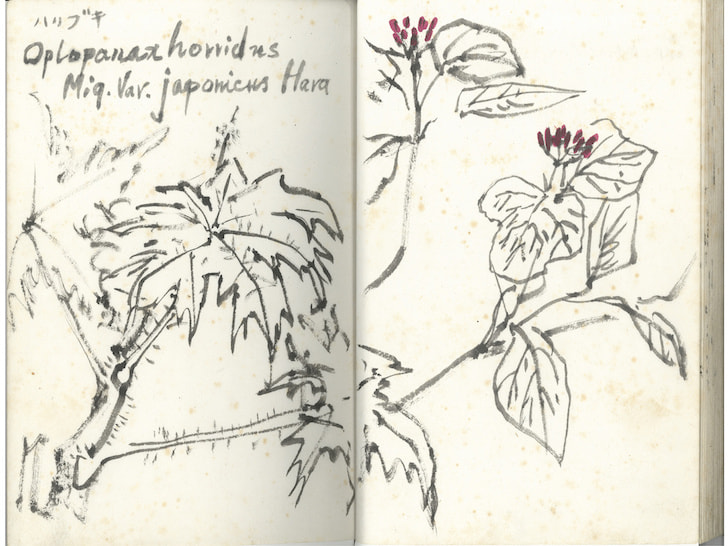 ハリブキ
Oplopanax horridus
Miq. Var. japonicus Hara